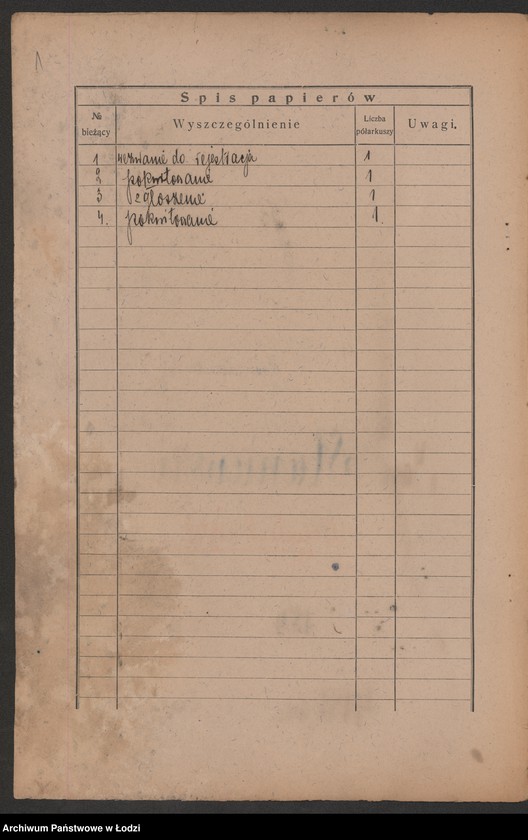 1
Spis papierów
№ bieżący Wyszczególnienie Liczba półarkuszy Uwagi.
1 wezwanie do rejestracji 1
2 pokwitowanie 1
3 zgłoszenie 1
4. pokwitowanie 1.
Archiwum Państwowe w Łodzi